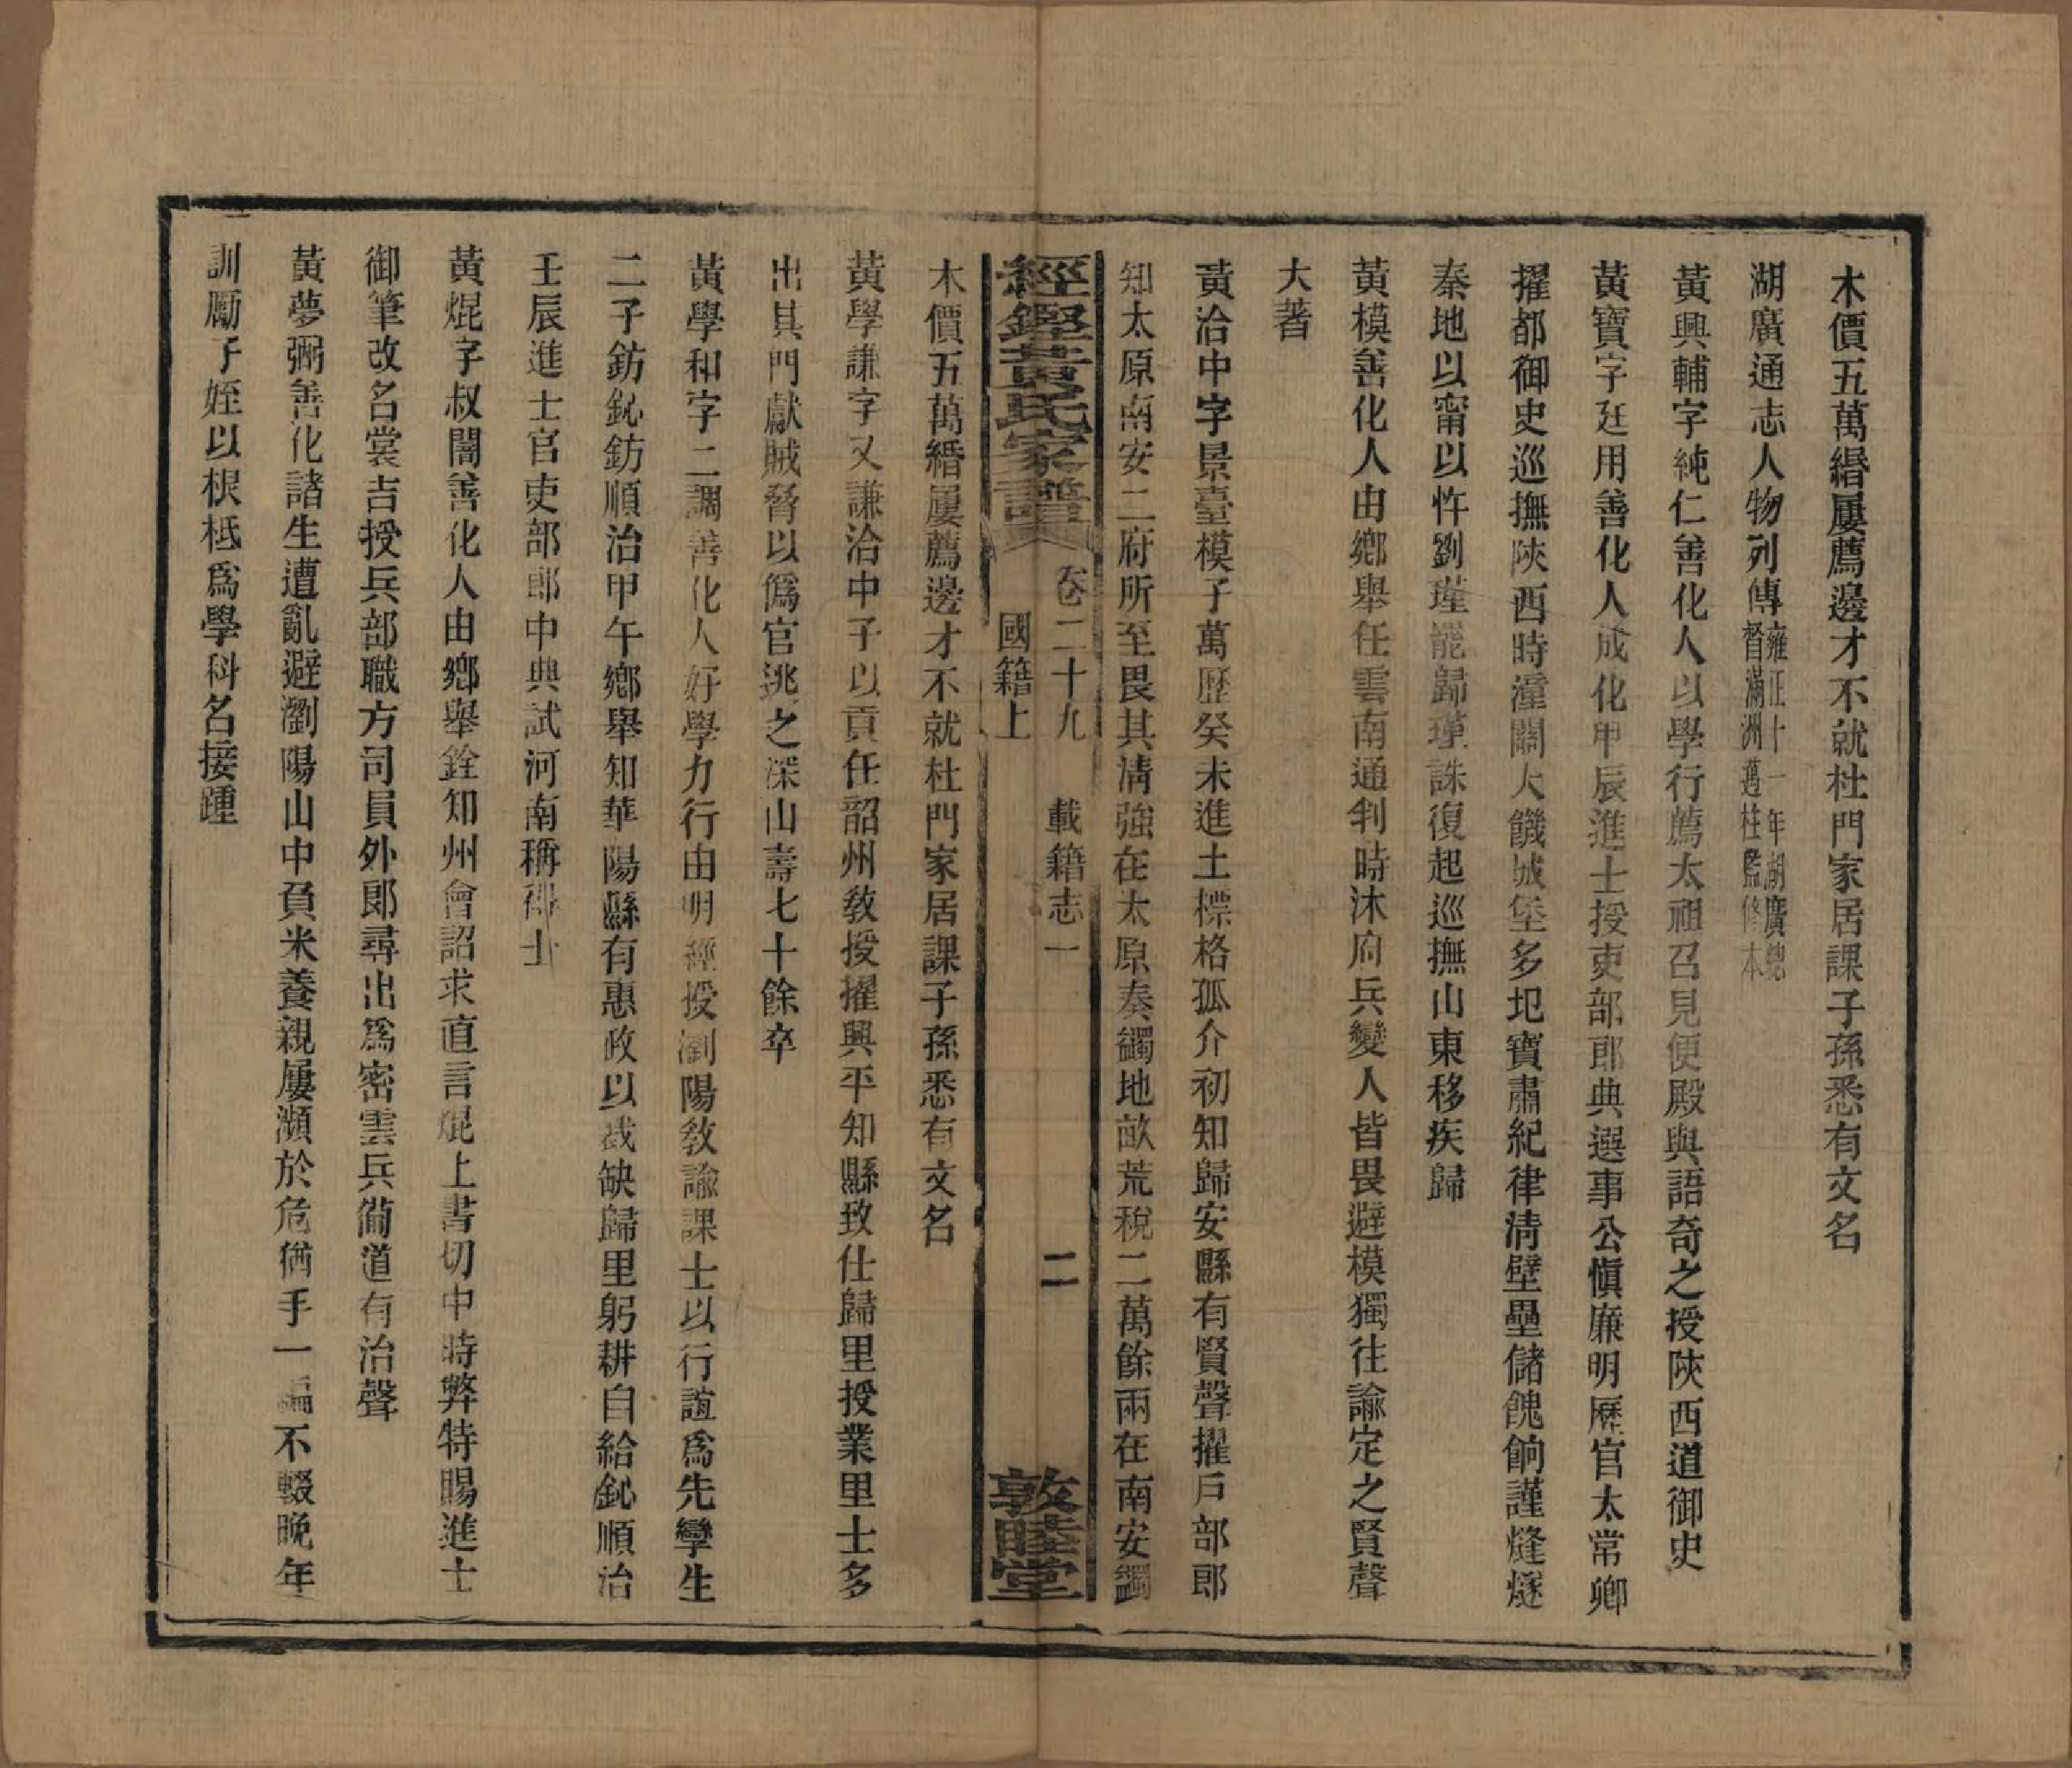 木價五萬緡屢薦邊才不就杜門家居課子孫悉有文名
湖廣通志人物列傳雍正十一年湖廣總督滿洲邁柱監修本
黃興輔字純仁善化人以學行薦太祖召見便殿與語奇之授陝西道御史
黃寶字廷用善化人成化甲辰進士授吏部郎典選事公愼廉明歷官太常卿
擢都御史巡撫陝西時潼關大饑城堡多圯寶肅紀律淸壁壘儲餽餉謹烽燧
秦地以甯以忤劉瑾罷歸瑾誅復起巡撫山東移疾歸
黃模善化人由鄉舉任雲南通判時沐府兵變人皆畏避模獨往諭定之賢聲
大著
黃洽中字景臺模子萬歷癸未進士標格孤介初知歸安縣有賢聲擢戶部郎
知太原南安二府所至畏其淸強在太原奏蠲地畝荒稅二萬餘兩在南安蠲
經鏗黃氏家譜 卷二十九 載籍志一 國籍上 二 敦睦堂
木價五萬緡屢薦邊才不就杜門家居課子孫悉有文名
黃學謙字又謙洽中子以貢任韶州敎授擢興平知縣致仕歸里授業里士多
出其門獻賊脅以僞官逃之深山壽七十餘卒
黃學和字二調善化人好學力行由明經授瀏陽敎諭課士以行誼爲先孿生
二子鈁鈊鈁順治甲午鄉舉知華陽縣有惠政以裁缺歸里躬耕自給鈊順治
壬辰進士官吏部郎中典試河南稱得士
黃焜字叔闇善化人由鄉舉銓知州會詔求直言焜上書切中時弊特賜進士
御筆改名裳吉授兵部職方司員外郞尋出爲密雲兵備道有治聲
黃夢弼善化諸生遭亂避瀏陽山中負米養親屢瀕於危猶手一編不輟晚年
訓勵子姪以根柢爲學科名接踵